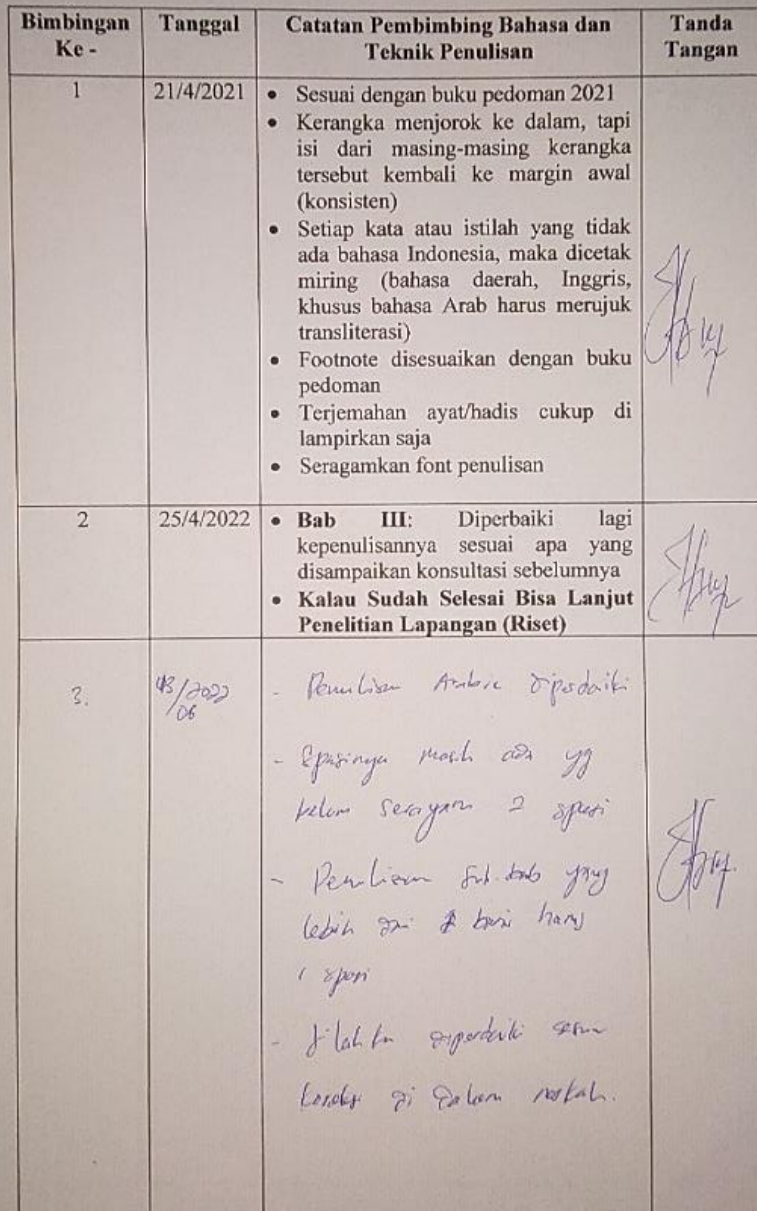 Bimbingan Ke - Tanggal Catatan Pembimbing Bahasa dan Teknik Penulisan Tanda Tangan
1 21/4/2021 • Sesuai dengan buku pedoman 2021
• Kerangka menjorok ke dalam, tapi
isi dari masing-masing kerangka
tersebut kembali ke margin awal
(konsisten)
• Setiap kata atau istilah yang tidak
ada bahasa Indonesia, maka dicetak
miring (bahasa daerah, Inggris,
khusus bahasa Arab harus merujuk
transliterasi)
• Footnote disesuaikan dengan buku
pedoman
• Terjemahan ayat/hadis cukup di
lampirkan saja
• Seragamkan font penulisan
2 25/4/2022 • Bab III: Diperbaiki lagi
kepenulisannya sesuai apa yang
disampaikan konsultasi sebelumnya
• Kalau Sudah Selesai Bisa Lanjut
Penelitian Lapangan (Riset)
3. /2022
06
- Penulisan diperbaiki
- Spasinya masih ada yg
belum seragam 2 spasi
- Penulisan sub.bab yang
lebih dari baris harus
1 spasi
- Silahkan diperbaiki sesuai
koreksi di dalam naskah.